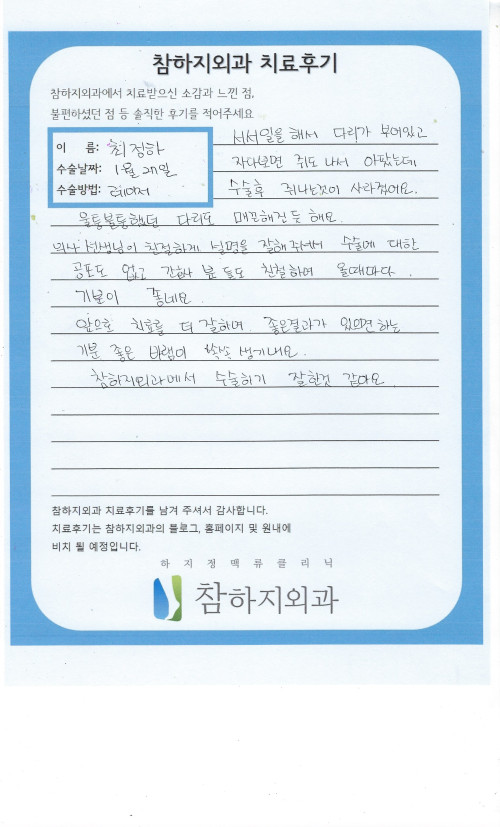 참하지외과 치료후기
참하지외과에서 치료받으신 소감과 느낀 점,
불편하셨던 점 등 솔직한 후기를 적어주세요
이 름: 최정하
수술날짜: 1월 27일
수술방법: 레이저
서서일을 해서 다리가 부어있고
자다보면 쥐도 나서 아팠는데
수술후 쥐나는것이 사라졌어요.
울퉁불퉁했던 다리도 매끈해진듯 해요.
워낙 선생님이 친절하게 설명을 잘해주셔서 수술에 대한
공포도 없고 간호사 분들도 친절하여 올때마다
기분이 좋네요.
앞으로 치료를 더 잘하여 좋은결과가 있으면 하는
기분 좋은 바램이 쑥쑥 생기네요.
참하지외과에서 수술하기 잘한것 같아요.
참하지외과 치료후기를 남겨 주셔서 감사합니다.
치료후기는 참하지외과의 블로그, 홈페이지 및 원내에
비치 될 예정입니다.
하지정맥류클리닉
참하지외과